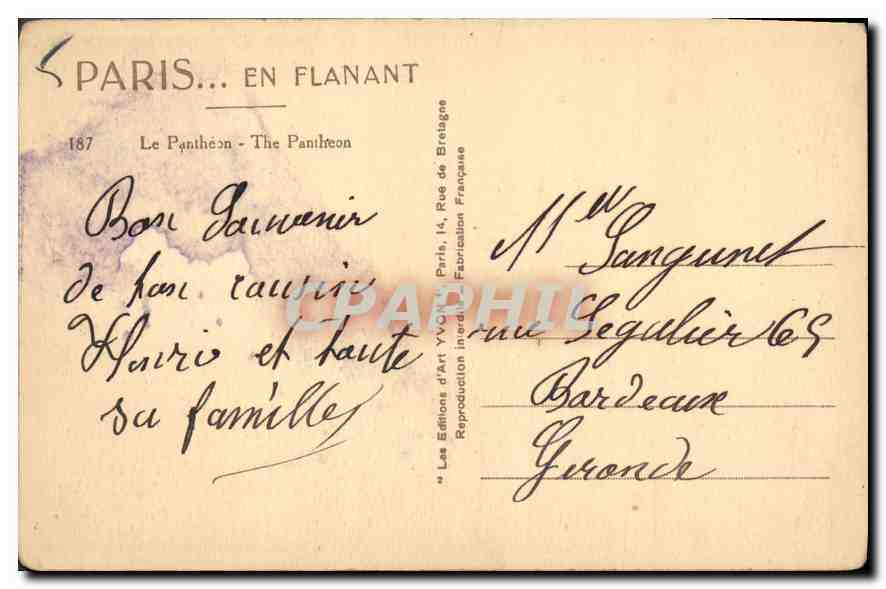 PARIS... EN FLANANT
187 Le Panthéon - The Pantheon
Bon Souvenir
de ton cousin
Henri et toute
sa famille
" Les Editions d'Art YVON Paris, 14, Rue de Bretagne
Reproduction interdite Fabrication Française
CPAPHIL
Mlle
Sangunet
rue Segalier 65
Bordeaux
Gironde